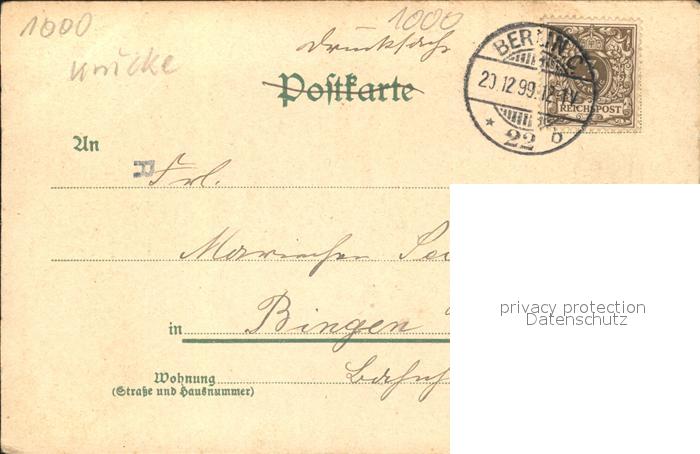 1000
1000
Drucksache
Postkarte
BERLIN C.
20.12.99. 12-1 N.
* 22 b
3
REICHSPOST
An
Frl.
Marie
in Bingen
Wohnung
(Straße und Hausnummer)
privacy protection
Datenschutz